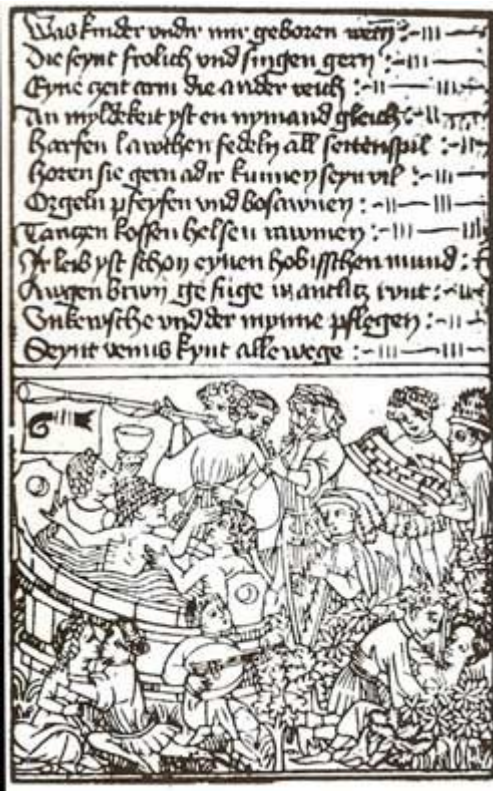 Was kinder vndir mir geboren werdẽ
Die seynt frolich vnd singen gern
Eyne czeit arm die ander reich
An myldekeit yst en nymand gleich
Harfen lawthen fedeln all seitenspil
Horen sie gern adir kunnen seyn vil
Orgeln pfeyfen vnd bosawnen
Tanczen kossen helsen rawmen
Ir leib yst schon eynen hobisschen mund
Awgen brwn ge fuge wantlitz rvnt
Vnkewsche vnd der mynne pflegen
Seynt venus kynt alle wege